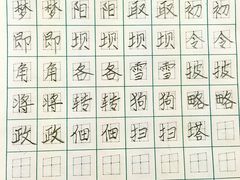 梦梦阳阳取取初初
即即坝坝坝令令
角角各各雪雪披披
将将转转狗狗略略
政政佃佃扫扫塔